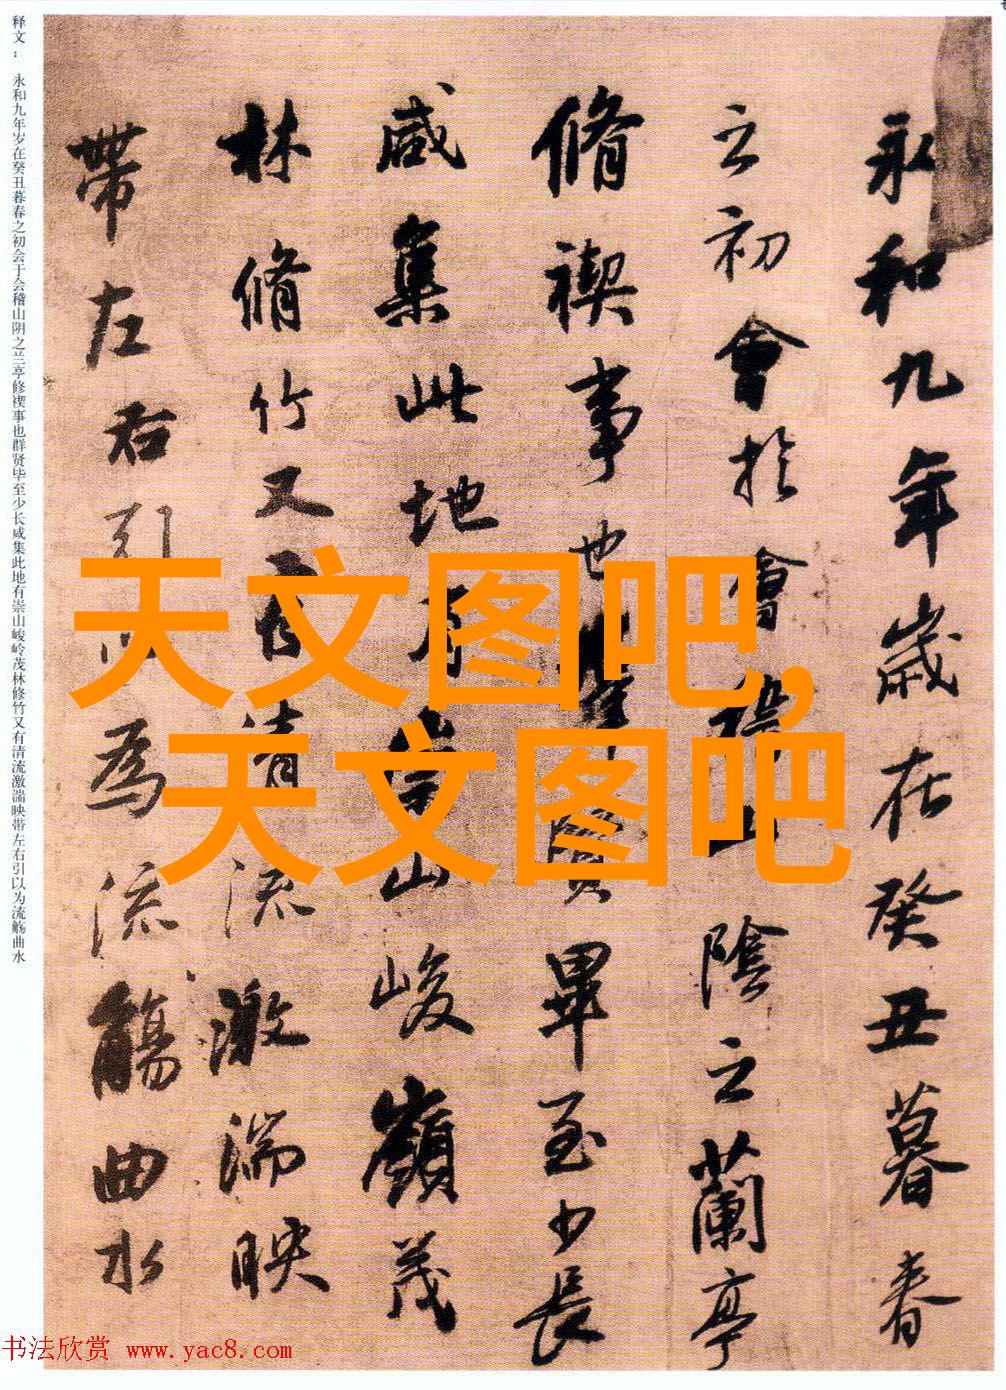 永和九年歲在癸丑暮春
之初會於會稽山陰之蘭亭
脩禊事也群賢畢至少長
咸集此地有崇山峻嶺茂
林脩竹又有清流激湍映
帶左右引以為流觴曲水
释文： 永和九年岁在癸丑暮春之初会于会稽山阴之兰亭修禊事也群贤毕至少长咸集此地有崇山峻岭茂林修竹又有清流激湍映带左右引以为流觞曲水
天文图吧,
天文图吧
书法欣赏 www.yac8.com